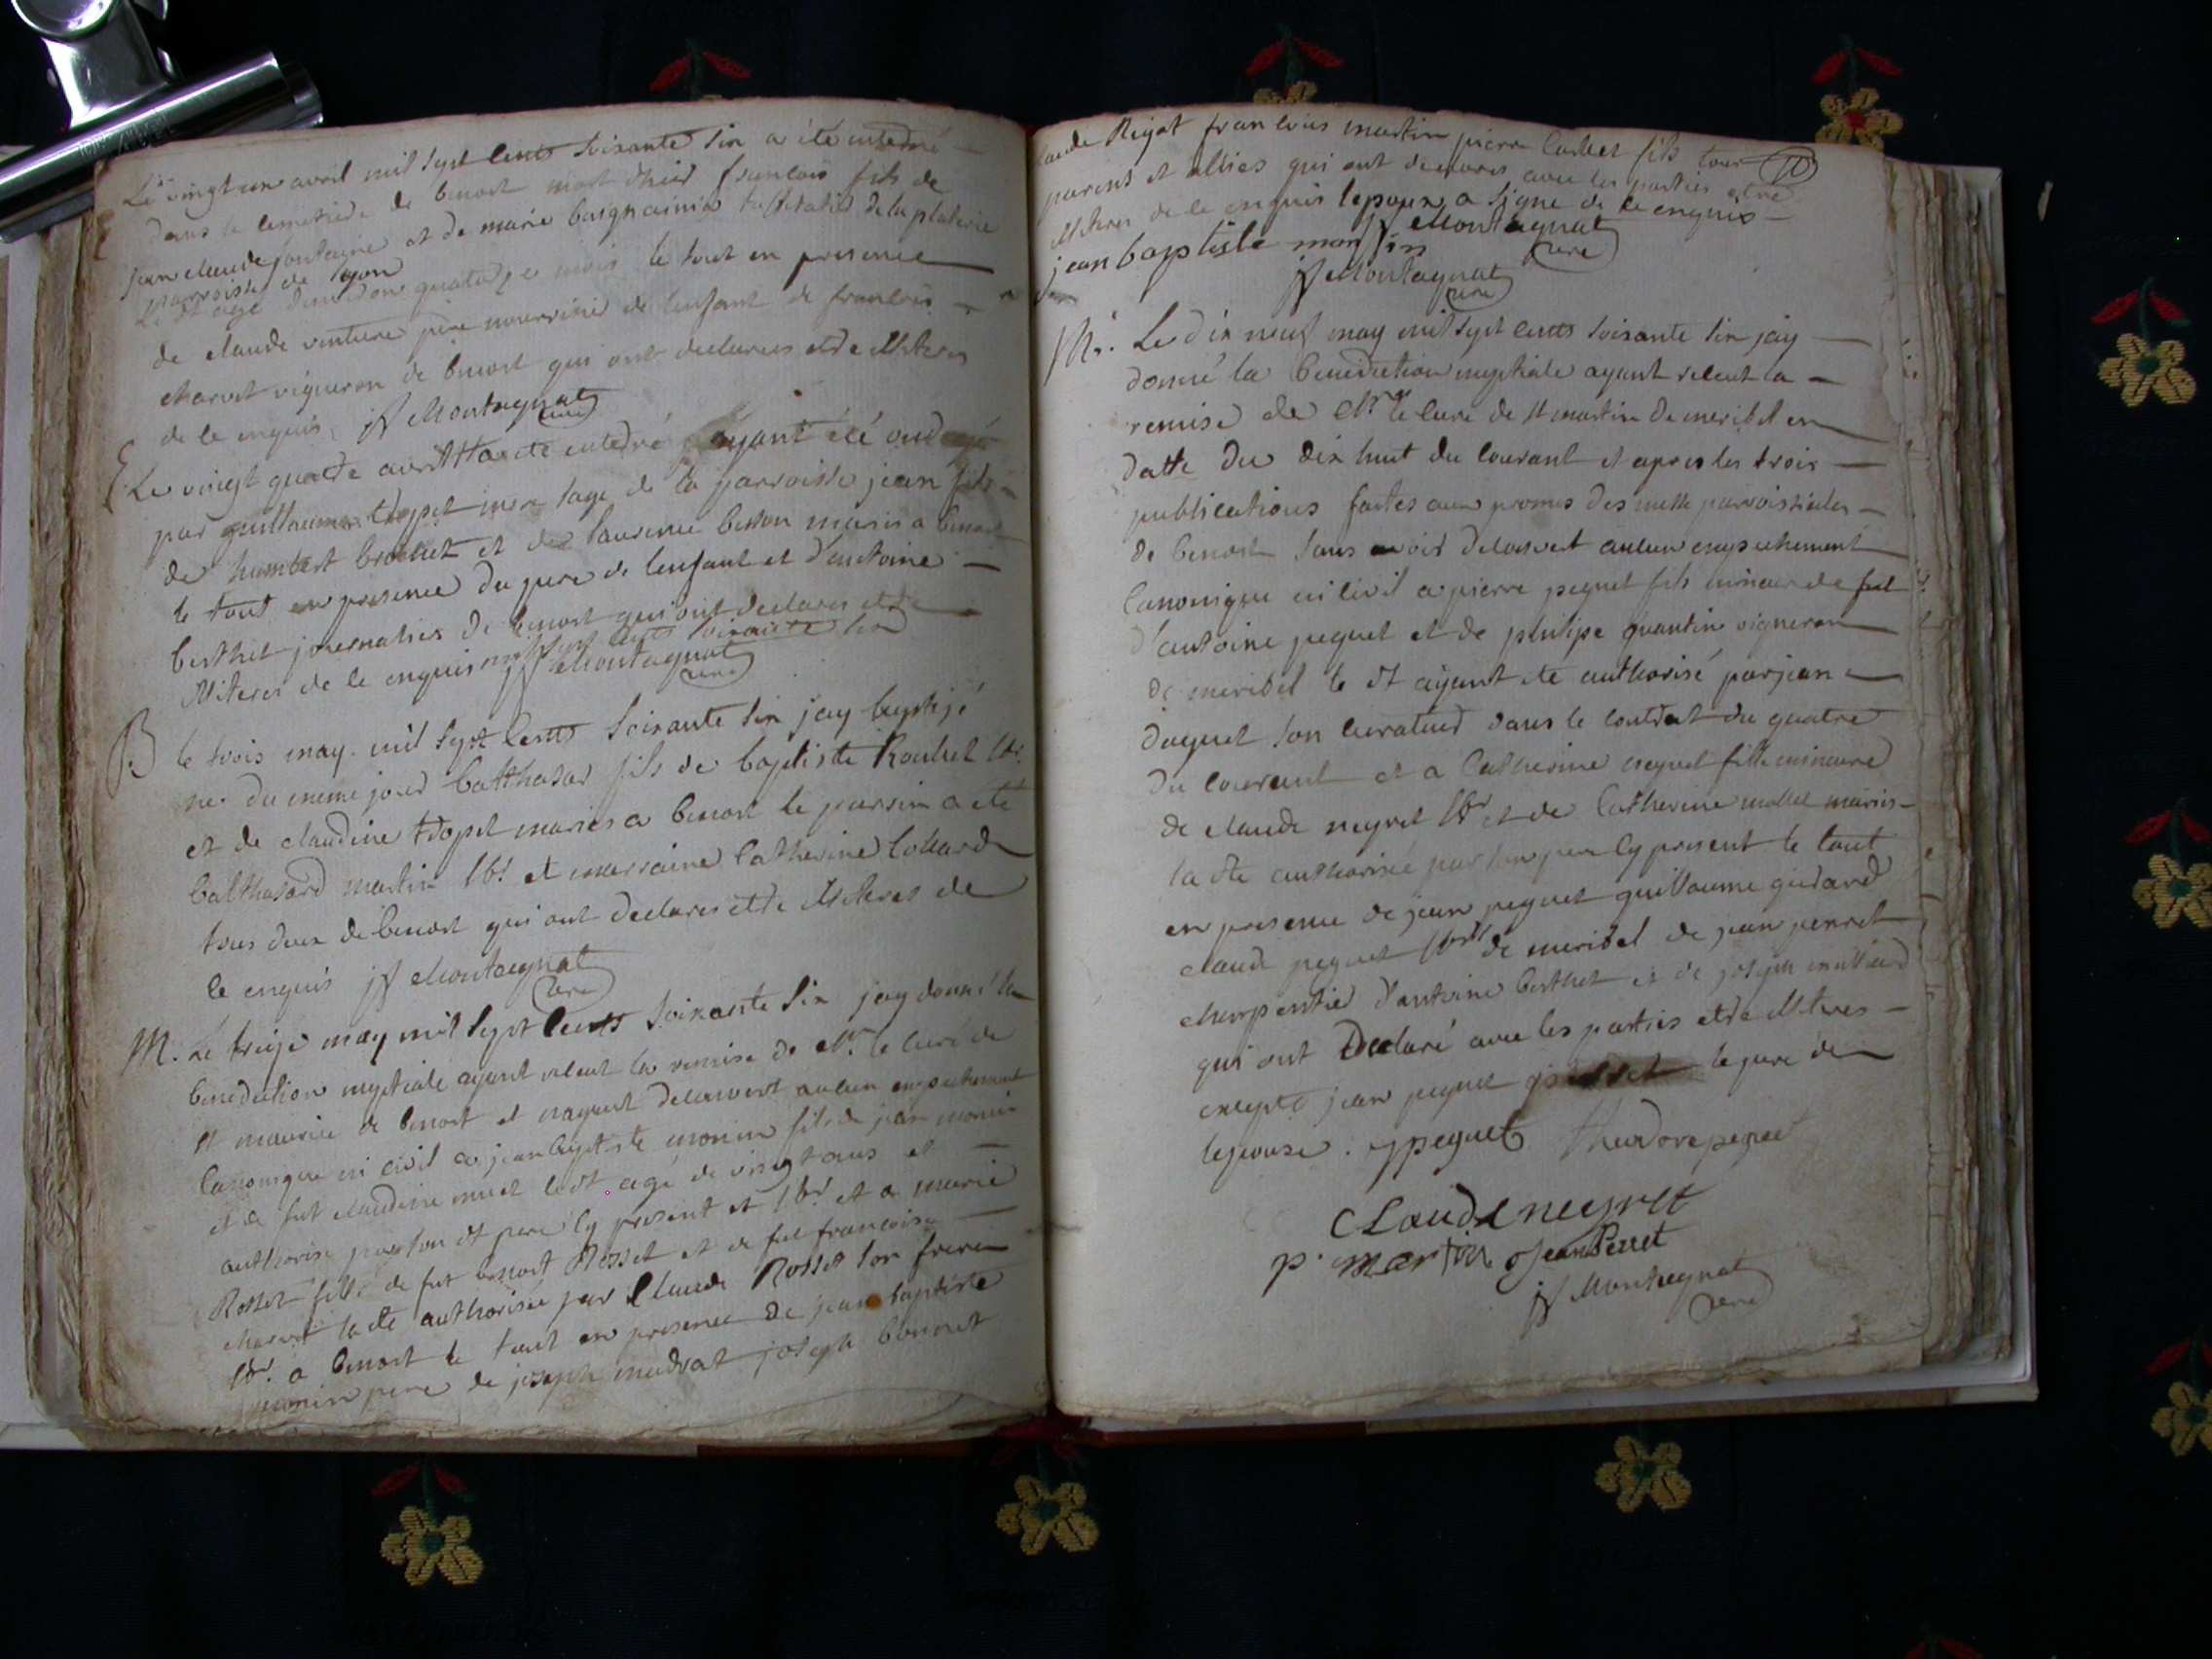 Le vingt un avril mil sept cents soixante six a été enterré
dans le cemetiere de benost mort d'hier francois fils de
jean claude fontaine et de marie taffetatier de la platerie
parroisse de lyon
le dt agé d'environ quatorze mois le tout en presence
de claude venture père nourricier de l'enfant de francois
charvet vigneron de benost qui ont declarés etre illiteres
de ce enquis jf Montagnat
curé
E Le vingt quatre avril a ete enterré ayant été ondoyé
par guillaumette tropet sage de la parroisse jean fils
de humbert brochet et de laurence besson mariés a benost
le tout en presence du pere de l'enfant et d'antoine
berthet journalier de benost qui ont declarés etre
illiteres de ce enquis mil sept cents soixante six
jf Montagnat
curé
B le trois may mil sept cents soixante six jay baptizé
né du meme jour balthasar fils de baptiste
et de claudine tropet mariés a benost le parrin a ete
balthasard martin lbr et marraine catherine collard
tous deux de benost qui ont declarés etre illiteres de
ce enquis jf Montagnat
curé
M. Le treize may mil sept cents soixante six jay donné la
benediction nuptiale ayant receut la remise de Mr le curé de
st maurice de benost et n'ayant decouvert aucun empechement
canonique ni civil a jean baptiste monin fils de jean monin
et de fut claudine le dt agé de vingt ans et
authorisé par son dt pere cy present et lbr et a marie
Rosset fille de fut benost Rosset et de fut francoise
charvet la dte authorisée par Claude Rosset son frere
lbr a benost le tout en presence de jean baptiste
monin pere de joseph joseph bonnet
claude Rigot francois martin pierre fils tous 10
parens et alliés qui ont declarés avec les parties etre
illiteres de ce enquis lepoux a signé de ce enquis
jean baptiste monin jf Montagnat
curé
jf Montagnat
curé
Mr. Le dix neuf may mil sept cents soixante six jay
donné la benediction nuptiale ayant receut la
remise de Mr le curé de st martin de meribel en
datte du dix huit du courant et apres les trois
publications faites aux prones des messe parroissiales
de benost sans avoir decouvert aucun empechement
canonique ni civil a pierre peguet fils mineur de fut
d'antoine peguet et de philipe quantin vigneron
de meribel le dt ayant ete authorisé par jean
duguet son curateur dans le contrat du quatre
du courant et a catherine neyret fille mineure
de claude neyret lbr et de catherine mollet mariés
la dte authorisée par son pere cy present le tout
en presence de jean peguet guillaume girard
claude peguet lbrs de meribel de jean perret
charpentier d'antoine berthet et de joseph
qui ont declaré avec les parties etre illiteres
excepté jean peguet le pere de
lepouse. jpeguet
claude neyret
p. martin Jean Perret
jf Montagnat
curé